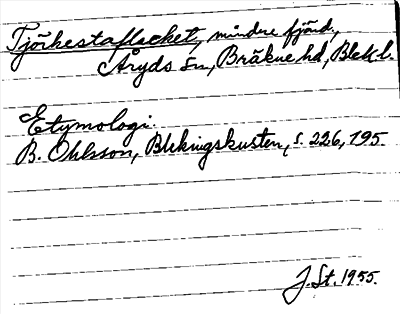 Tjörkestaflaket, mindre fjärd,
Åryds sn, Bräkne hd, Blek. l.
Etymologi.
B. Ohlsson, Blekingskusten, s. 226, 195.
J. St. 1955.